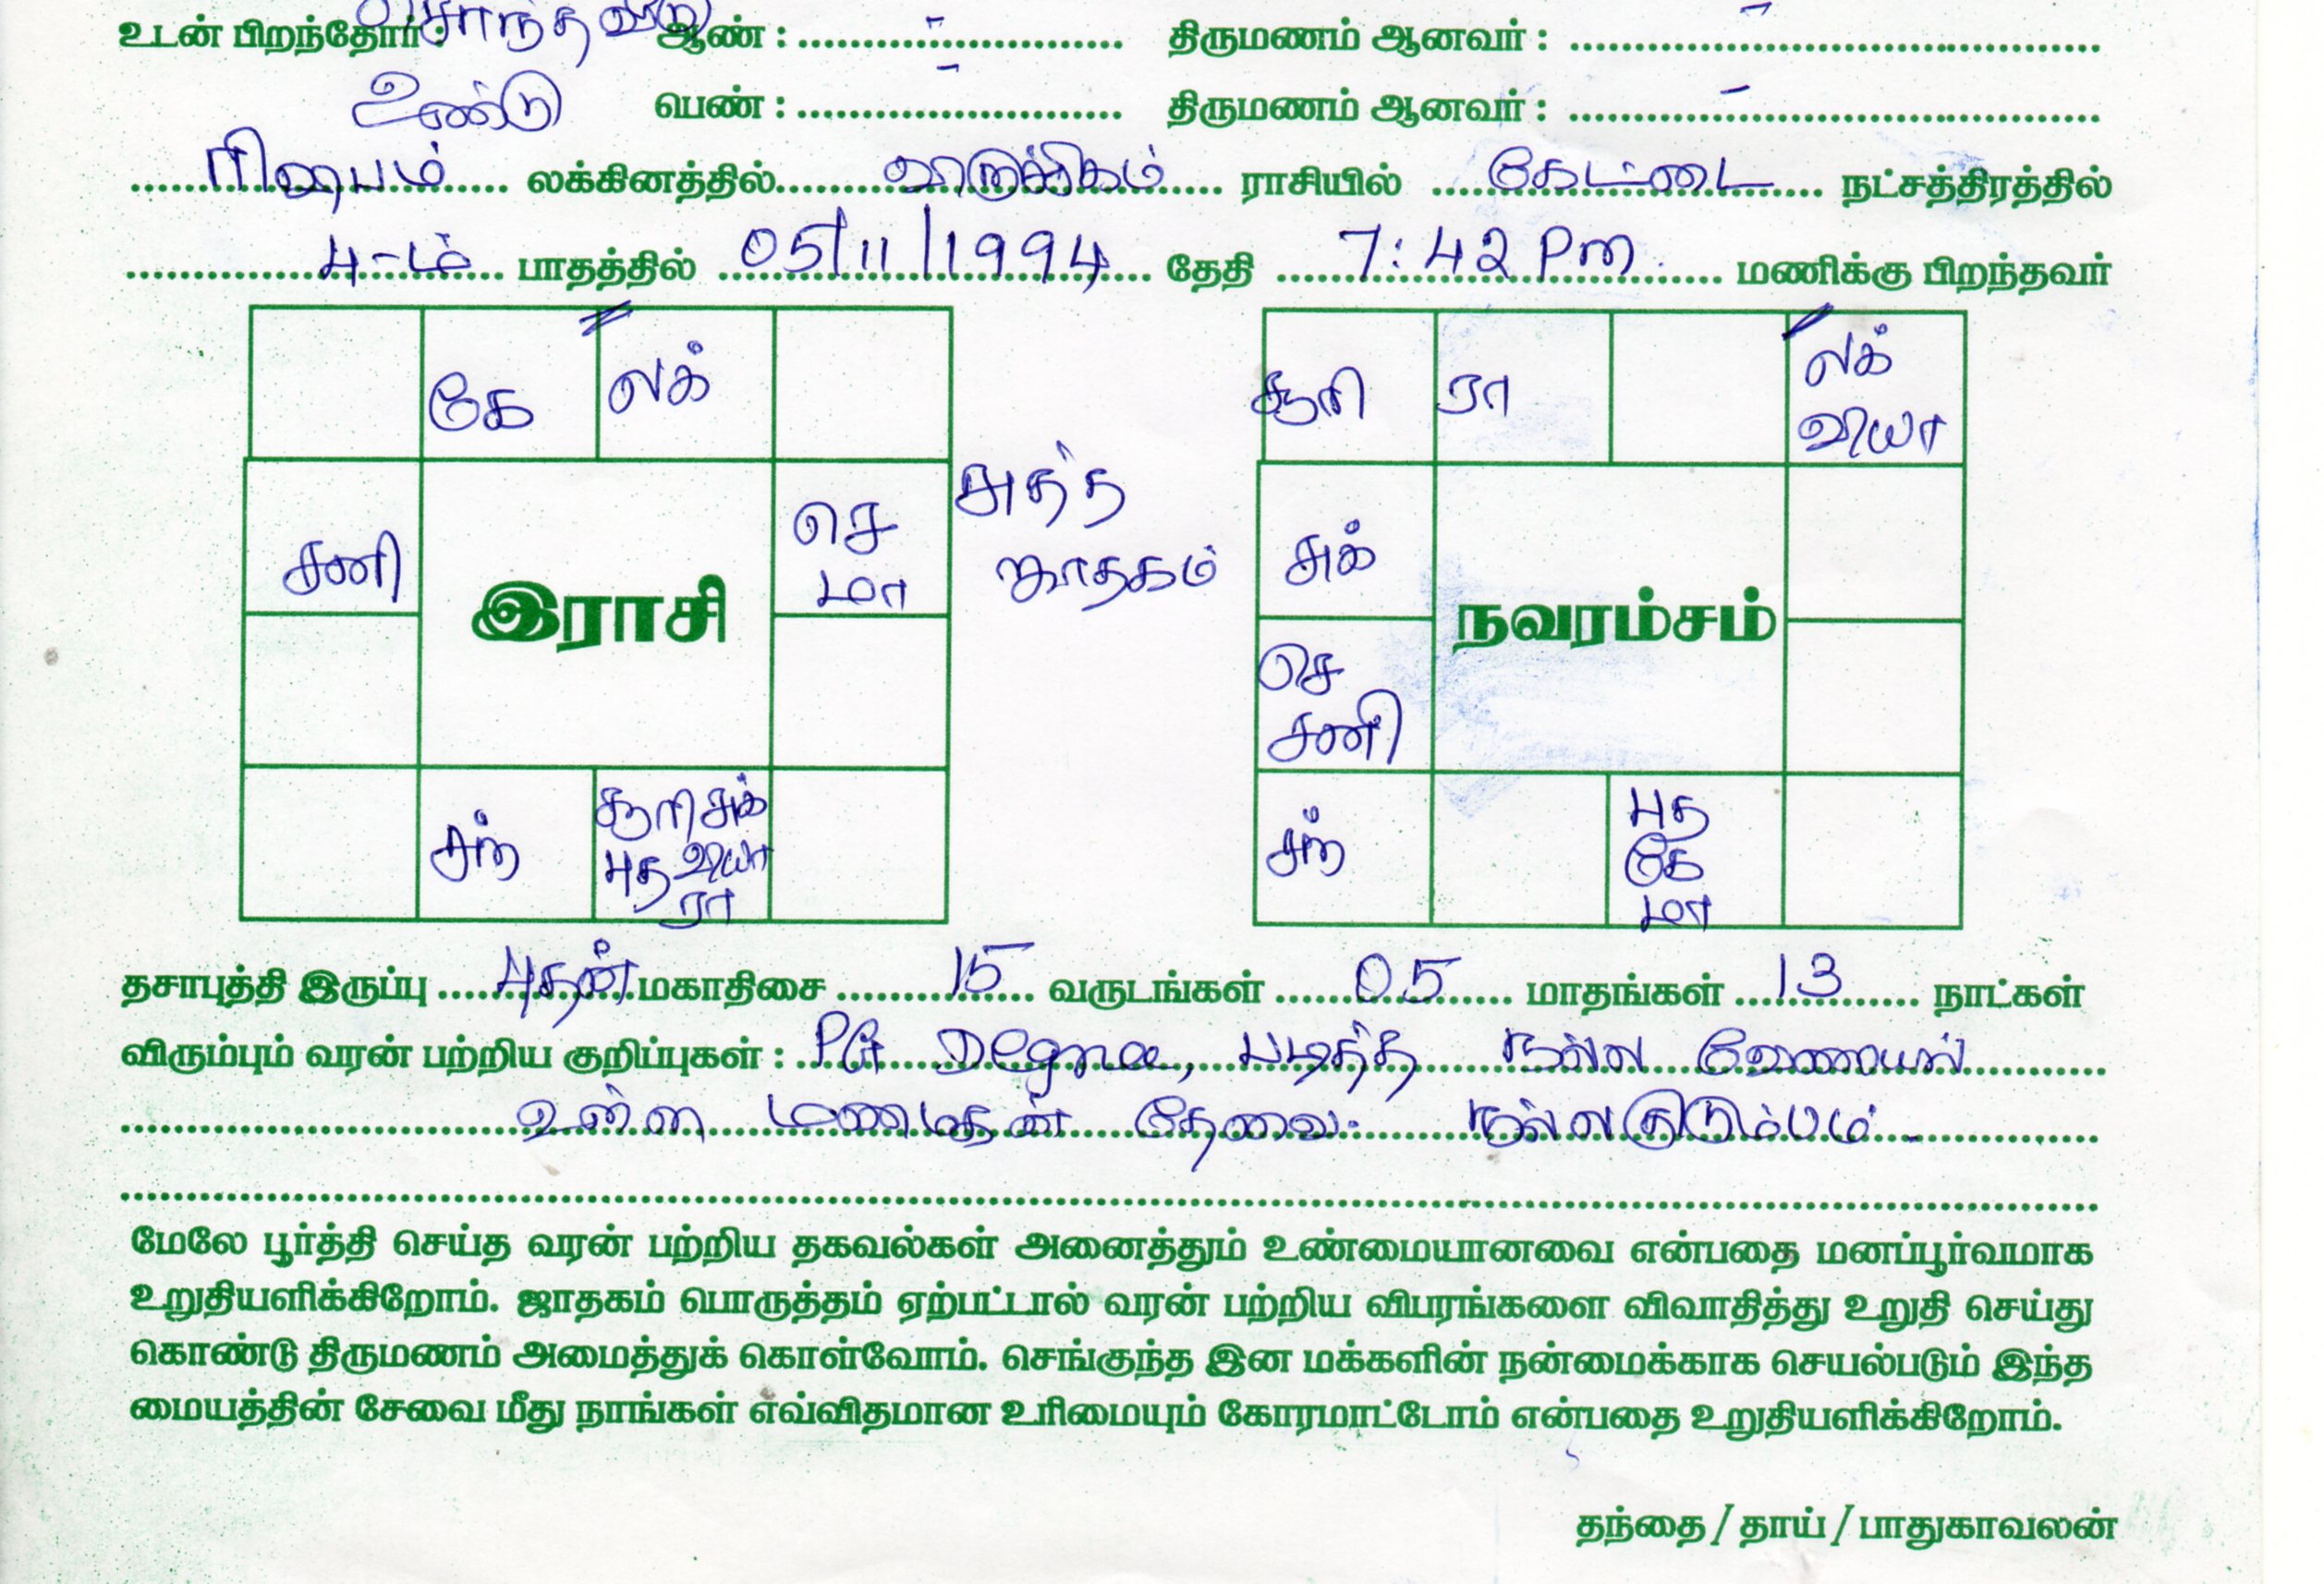 உடன் பிறந்தோர்: சொந்த வீடு ஆண் : - திருமணம் ஆனவர் : -
உண்டு பெண் : - திருமணம் ஆனவர் : -
ரிஷபம் லக்கினத்தில் விருச்சிகம் ராசியில் கேட்டை நட்சத்திரத்தில்
4-ம் பாதத்தில் 05/11/1994 தேதி 7:42 Pm மணிக்கு பிறந்தவர்
கே லக்
சனி செ மா
இராசி
சந் சூரி சுக் புத வியா ரா
சுத்த
ஜாதகம்
சூரி ரா லக் வியா
சுக்
நவரம்சம்
செ சனி
சந் புத கே மா
தசாபுத்தி இருப்பு புதன் மகாதிசை 15 வருடங்கள் 05 மாதங்கள் 13 நாட்கள்
விரும்பும் வரன் பற்றிய குறிப்புகள் : PG Degree, படித்த நல்ல வேலையில்
உள்ள மணமகன் தேவை. நல்ல குடும்பம்.
மேலே பூர்த்தி செய்த வரன் பற்றிய தகவல்கள் அனைத்தும் உண்மையானவை என்பதை மனப்பூர்வமாக
உறுதியளிக்கிறோம். ஜாதகம் பொருத்தம் ஏற்பட்டால் வரன் பற்றிய விபரங்களை விவாதித்து உறுதி செய்து
கொண்டு திருமணம் அமைத்துக் கொள்வோம். செங்குந்த இன மக்களின் நன்மைக்காக செயல்படும் இந்த
மையத்தின் சேவை மீது நாங்கள் எவ்விதமான உரிமையும் கோரமாட்டோம் என்பதை உறுதியளிக்கிறோம்.
தந்தை / தாய் / பாதுகாவலன்